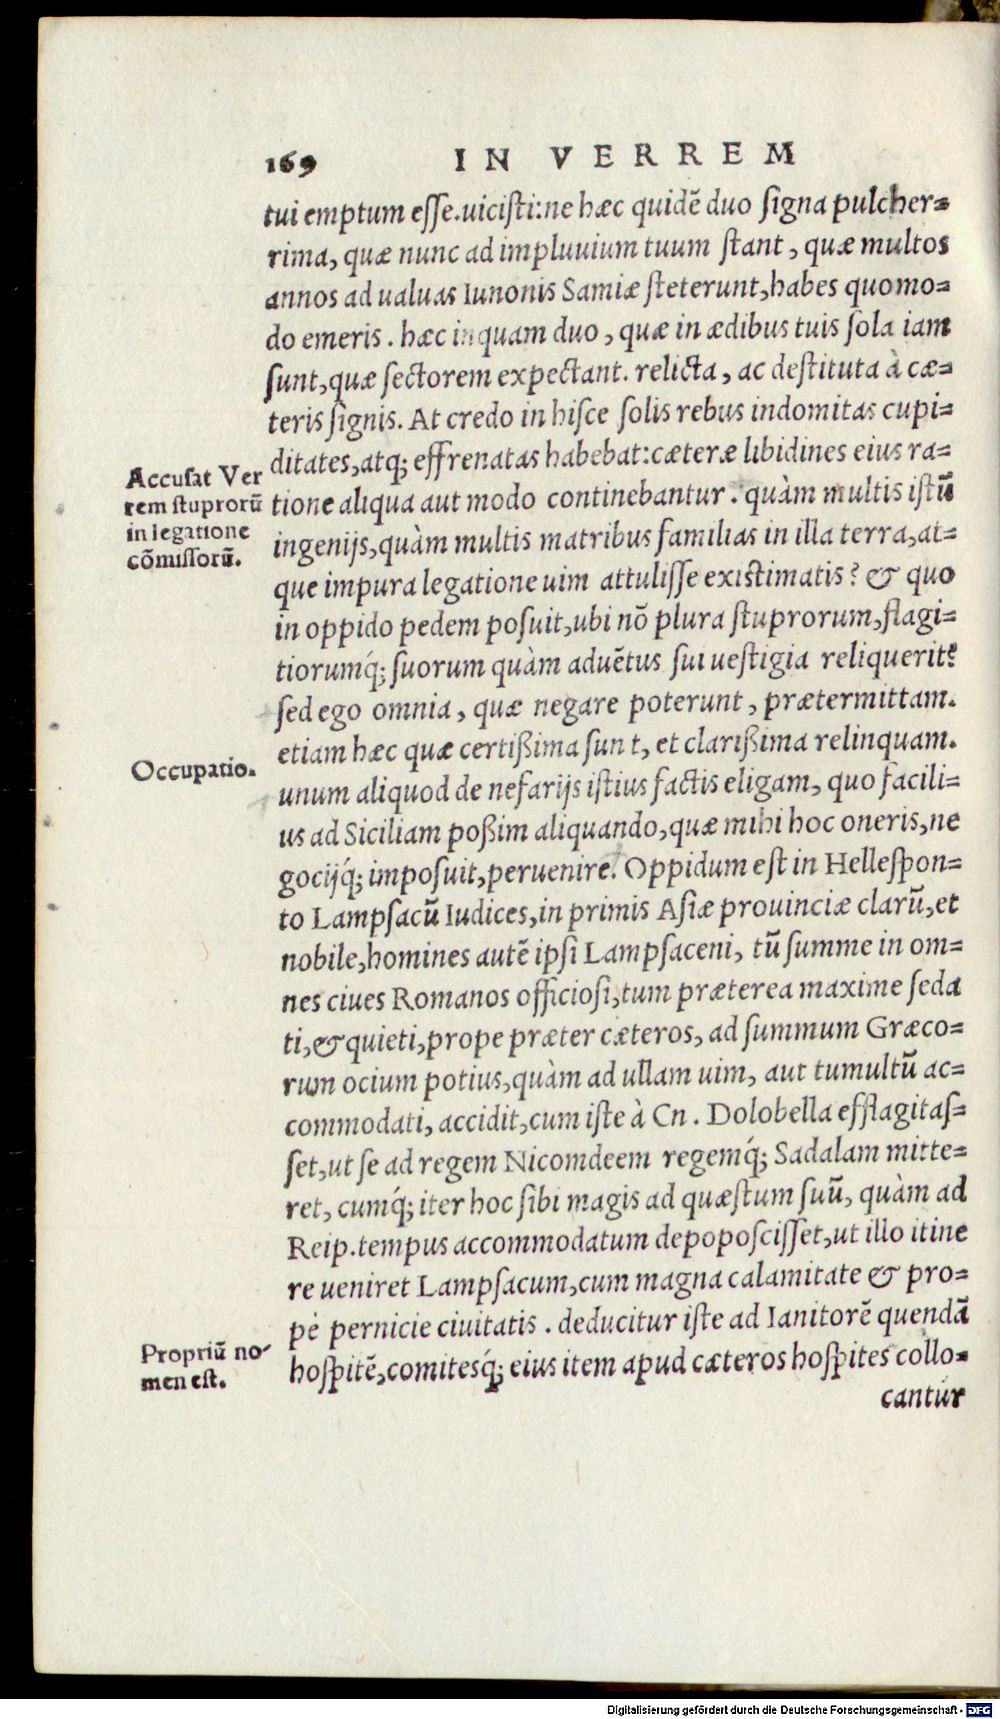 169 IN VERREM
tui emptum esse.uicisti:ne hæc quidẽ duo signa pulcher=
rima, quæ nunc ad impluuium tuum stant, quæ multos
annos ad ualuas Iunonis Samiæ steterunt,habes quomo=
do emeris. hæc inquam duo, quæ in ædibus tuis sola iam
sunt,quæ sectorem expectant. relicta, ac destituta à cæ=
teris signis. At credo in hisce solis rebus indomitas cupi=
ditates,atq; effrenatas habebat:cæteræ libidines eius ra=
tione aliqua aut modo continebantur. quàm multis istũ
ingenijs,quàm multis matribus familias in illa terra,at=
que impura legatione uim attulisse existimatis? & quo
in oppido pedem posuit,ubi nõ plura stuprorum,flagi=
tiorumq́; suorum quàm aduẽtus sui uestigia reliquerit?
sed ego omnia, quæ negare poterunt, prætermittam.
etiam hæc quæ certißima sunt, et clarißima relinquam.
unum aliquod de nefarijs istius factis eligam, quo facili=
us ad Siciliam poßim aliquando,quæ mihi hoc oneris,ne
gocijq́; imposuit,peruenire. Oppidum est in Hellespon=
to Lampsacũ Iudices,in primis Asiæ prouinciæ clarũ,et
nobile,homines autẽ ipsi Lampsaceni, tũ summe in om=
nes ciues Romanos officiosi,tum præterea maxime seda
ti,& quieti,prope præter cæteros, ad summum Græco=
rum ocium potius,quàm ad ullam uim, aut tumultũ ac=
commodati, accidit,cum iste à Cn. Dolobella efflagitas=
set,ut se ad regem Nicomdeem regemq́; Sadalam mitte=
ret, cumq́; iter hoc sibi magis ad quæstum suũ, quàm ad
Reip.tempus accommodatum depoposcisset,ut illo itine
re ueniret Lampsacum,cum magna calamitate & pro=
pe pernicie ciuitatis. deducitur iste ad Ianitorẽ quendã
hospitẽ,comitesq́; eius item apud cæteros hospites collo=
cantur
Accusat Ver
rem stuprorũ
in legatione
cõmissorũ.
Occupatio.
Propriũ no-
men est.
Digitalisierung gefördert durch die Deutsche Forschungsgemeinschaft - DFG